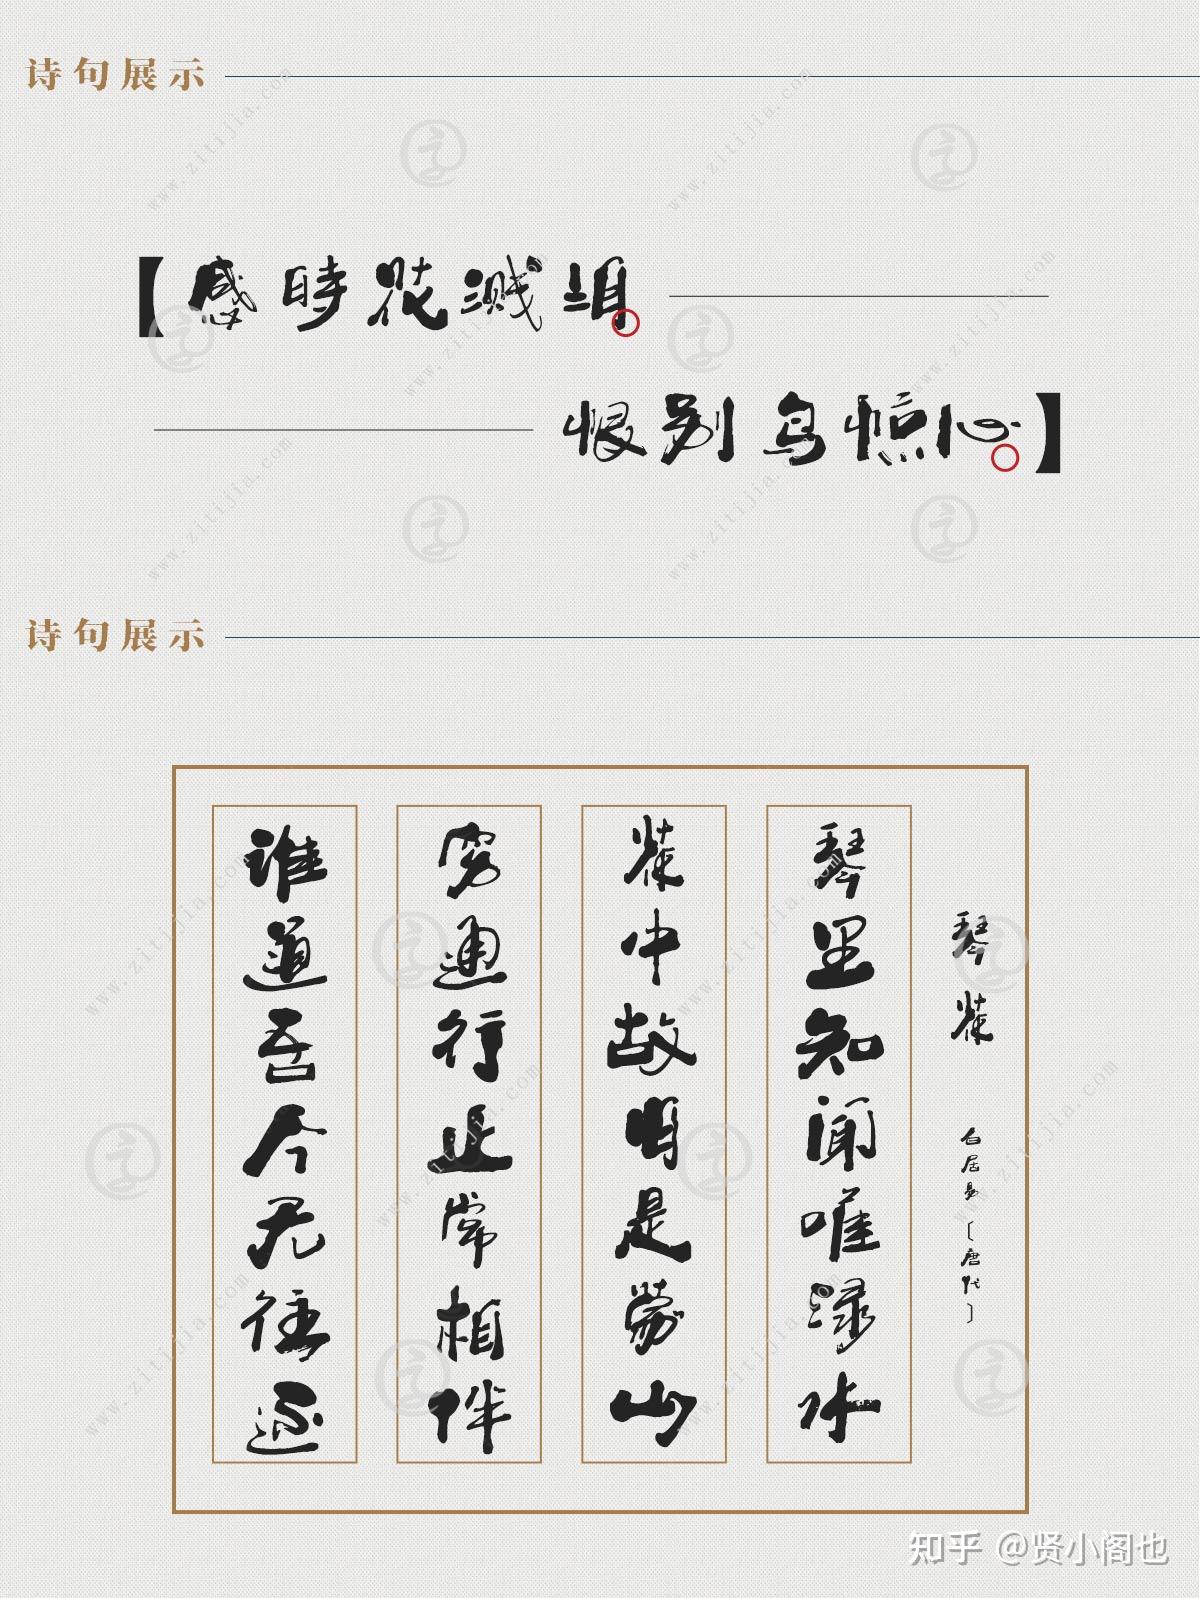 诗句展示
【感時花溅泪。
恨别鸟惊心。】
诗句展示
琴茶
白居易〔唐代〕
琴里知闻唯渌水
茶中故明是蒙山
穷通行止常相伴
谁道吾今无往还
www.zitijia.com
知乎 @贤小阁也